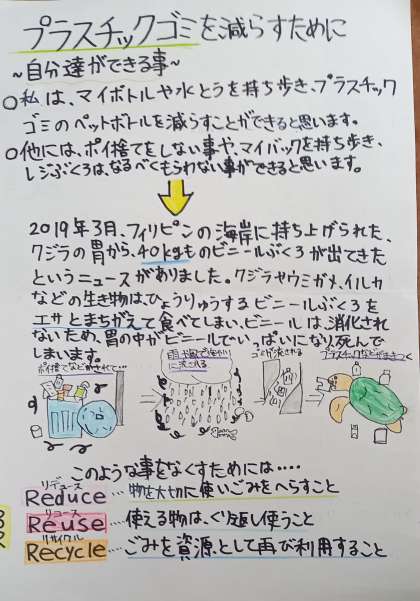 プラスチックゴミを減らすために
~自分達ができる事~
○私は、マイボトルや水とうを持ち歩き、プラスチック
ゴミのペットボトルを減らすことができると思います。
○他には、ポイ捨てをしない事や、マイバックを持ち歩き、
レジぶくろは、なるべくもらわない事ができると思います。
2019年3月、フィリピンの海岸に持ち上げられた、
クジラの胃から、40kgものビニールぶくろが出てきた
というニュースがありました。クジラやウミガメ、イルカ
などの生き物は、ひょうりゅうするビニールぶくろを
エサとまちがえて食べてしまい、ビニールは、消化され
ないため、胃の中がビニールでいっぱいになり、死んで
しまいます。
このような事をなくすためには‥‥
リデュース
Reduce … 物を大切に使いごみをへらすこと
リユース
Reuse … 使える物は、くり返し使うこと
リサイクル
Recycle … ごみを資源として再び利用すること